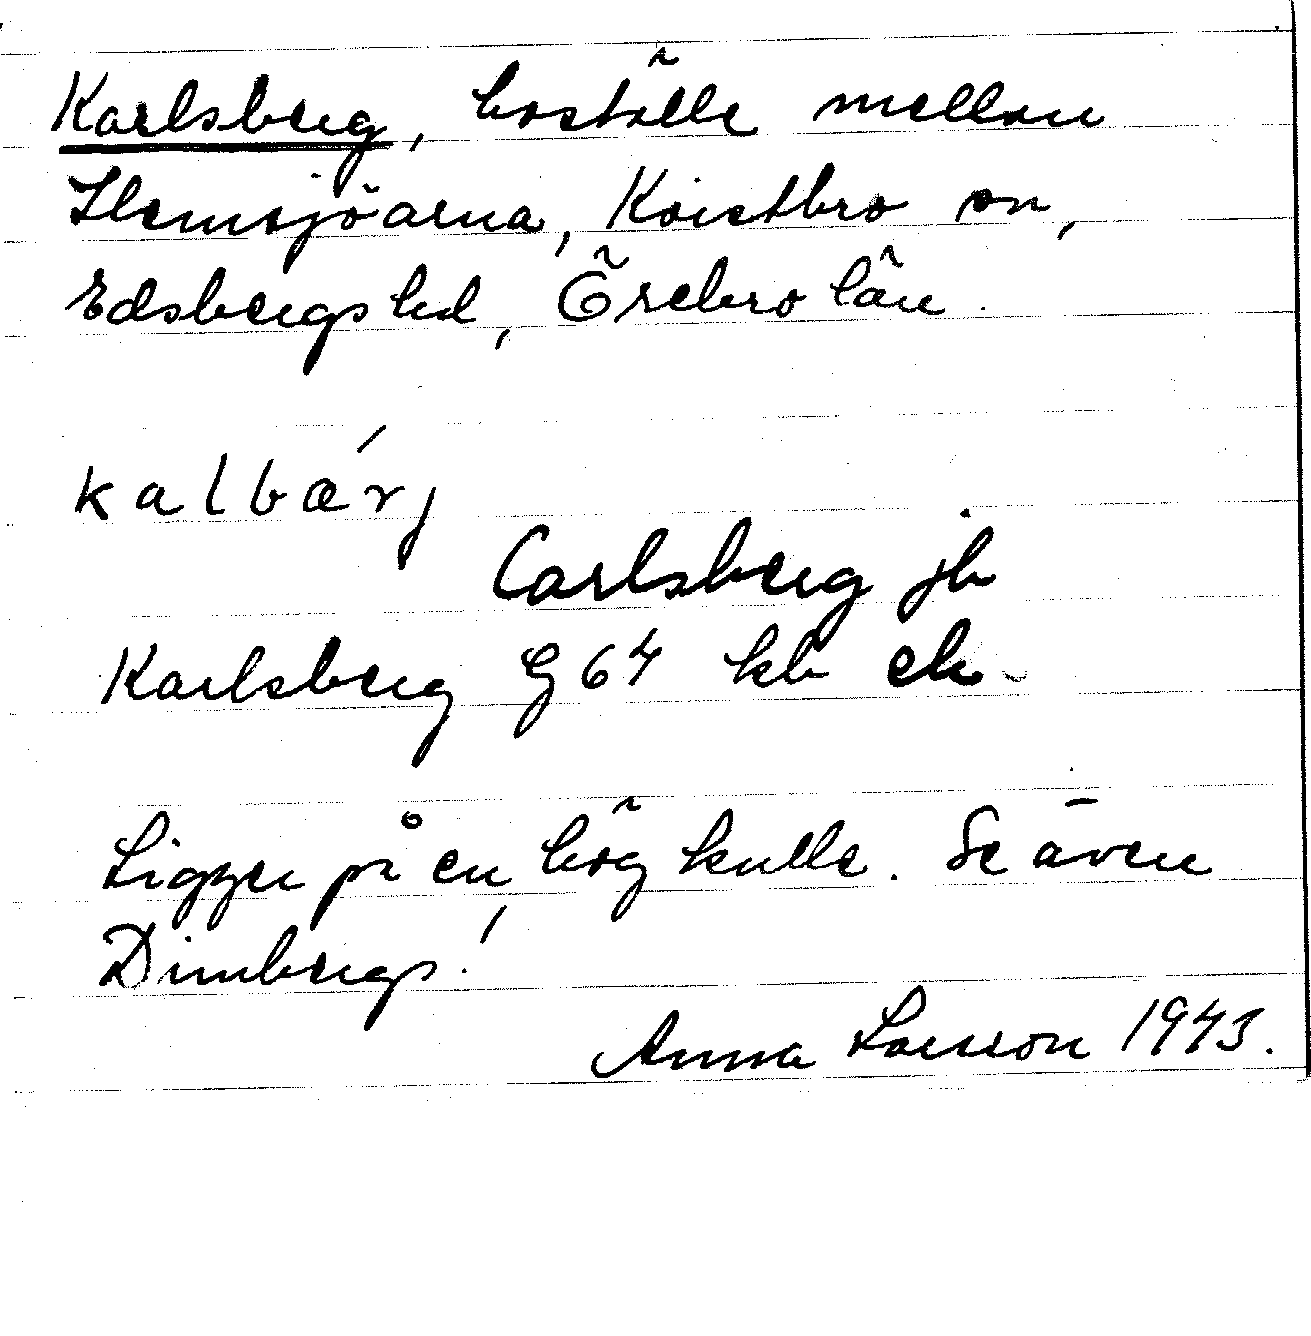 Karlsberg, boställe mellan
Elemsjöarna, Kvistbro sn,
Edsbergs hd, Örebro län.
kalbǽrj
Carlsberg jb
Karlsberg G64 kb ek
Ligger på en hög kulle. Se även
Dimbergs!
Anna Larsson 1943.